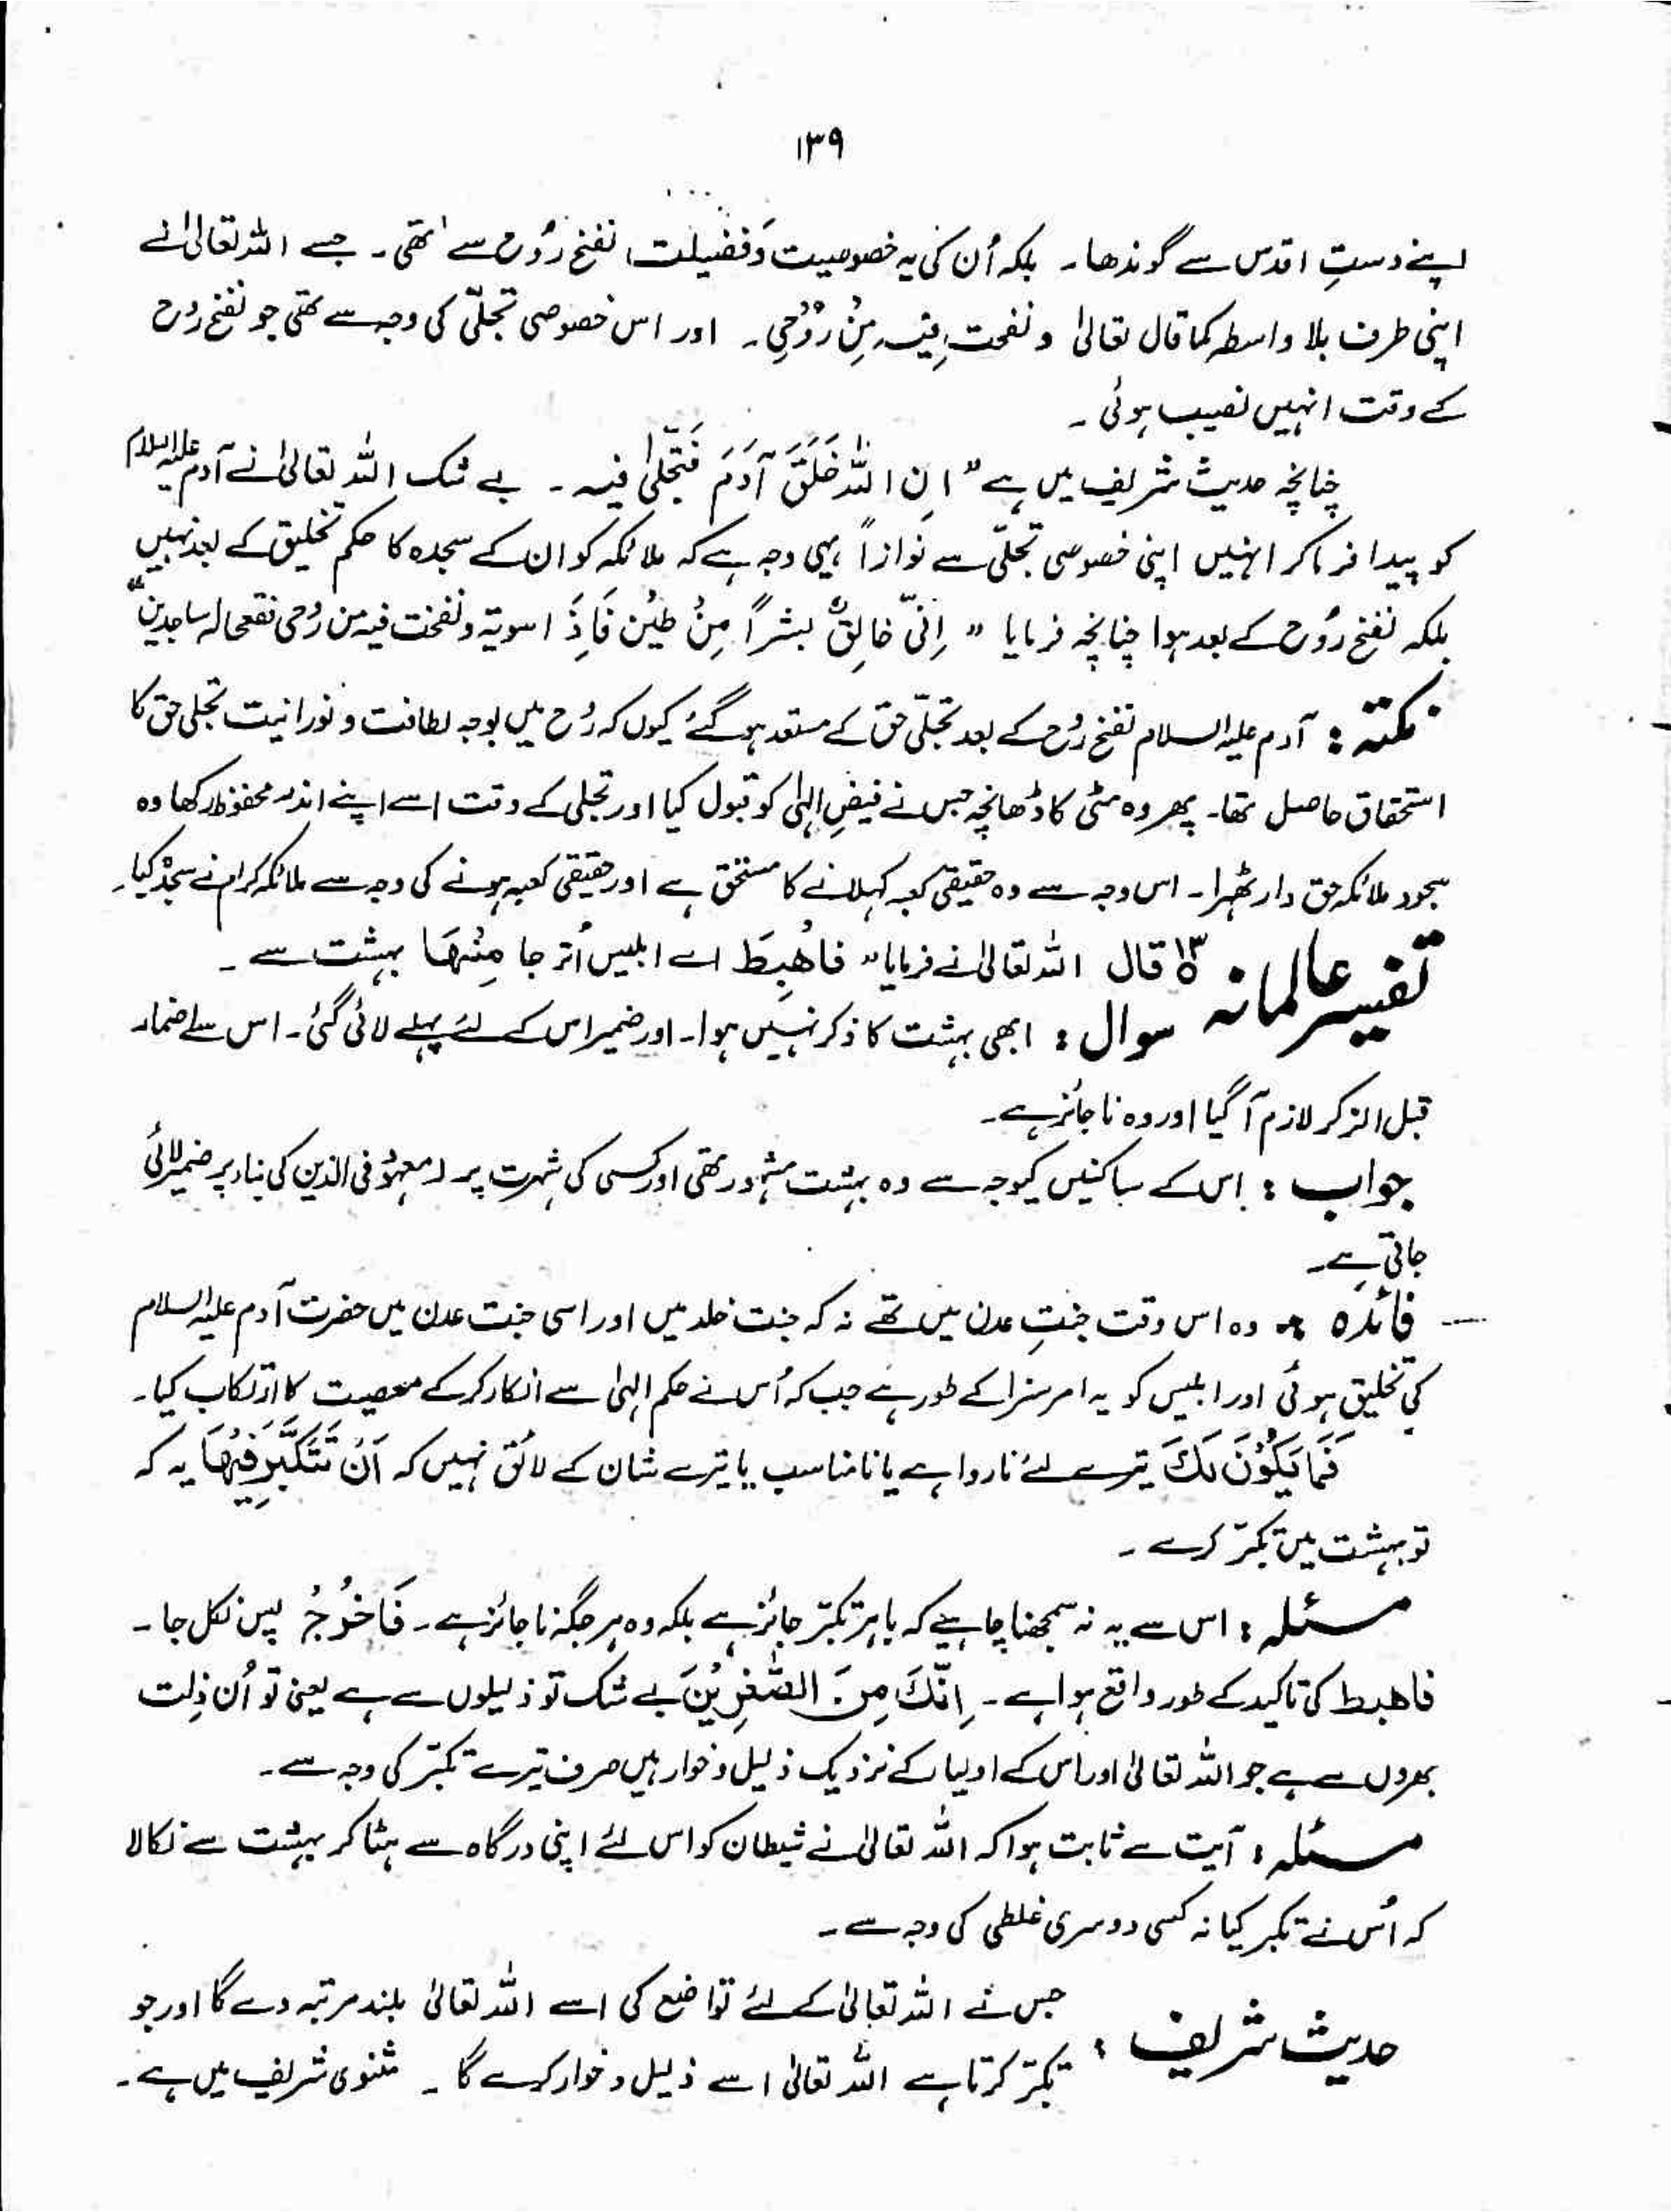 ۱۳۹
اپنے دستِ اقدس سے گوندھا۔ بلکہ اُن کی یہ خصوصیت وَفضیلت، نفخِ رُوح سے تھی۔ جسے اللہ تعالیٰ نے
اپنی طرف بلا واسطہ کما قال تعالیٰ و نفخت فِیْہِ مِنْ رُّوْحِی۔ اور اس خصوصی تجلّی کی وجہ سے تھی جو نفخِ رُوح
کے وقت انہیں نصیب ہوئی۔
چنانچہ حدیث شریف میں ہے "اِن اللّٰہَ خَلَقَ آدَمَ فَتَجَلّٰی فیہ۔ بے شک اللہ تعالیٰ نے آدم علیہ السلام
کو پیدا فرماکر انہیں اپنی خصوصی تجلّی سے نوازا" یہی وجہ ہے کہ ملائکہ کو ان کے سجدہ کا حکم تخلیق کے بعد نہیں
بلکہ نفخِ رُوح کے بعد ہوا چنانچہ فرمایا "اِنِّی خَالِقٌ بشراً مِنْ طِیْن فَاِذَ اسویتہ و نفخت فیہ من رُوحی فقعوالہ ساجدین"
نکتہ : آدم علیہ السلام نفخِ رُوح کے بعد تجلّی حق کے مستعد ہوگئے کیوں کہ رُوح میں بوجہ لطافت و نورانیت تجلی حق کا
استحقاق حاصل تھا۔ پھر وہ مٹی کا ڈھانچہ جس نے فیضِ الہٰی کو قبول کیا اور تجلی کے وقت اسے اپنے اندر محفوظ رکھا وہ
سجود ملائکہ حق دار ٹھہرا۔ اس وجہ سے وہ حقیقی کعبہ کہلانے کا مستحق ہے اور حقیقی کعبہ ہونے کی وجہ سے ملائکہ کرام نے سجدہ کیا۔
تفسیر عالمانہ ۱۳ قال اللہ تعالیٰ نے فرمایا" فَاھْبِطَ اے ابلیس اُتر جا مِنْھَا بہشت سے۔
سوال : ابھی بہشت کا ذکر نہیں ہوا۔ اور ضمیر اس کے لئے پہلے لائی گئی۔ اس سے اضمار
قبل الذکر لازم آگیا اور وہ ناجائز ہے۔
جواب : اس کے ساکنیں کیوجہ سے وہ بہشت مشہور تھی اور کسی کی شہرت پر معہود فی الذہن کی بناء پر ضمیر لائی
جاتی ہے۔
فائدہ : وہ اس وقت جنتِ عدن میں تھے نہ کہ جنت خلد میں اور اسی جنت عدن میں حضرت آدم علیہ السلام
کی تخلیق ہوئی اور ابلیس کو یہ امر سزا کے طور ہے جب کہ اُس نے حکم الہٰی سے انکار کرکے معصیت کا ارتکاب کیا۔
فَمَا یَکُوْنَ لَکَ تیرے لئے ناروا ہے یا نامناسب یا تیرے شان کے لائق نہیں کہ اَنْ تَتَکَبَّرَ فِیْھَا یہ کہ
تو بہشت میں تکبّر کرے۔
مسئلہ : اس سے یہ نہ سمجھنا چاہیئے کہ باہر تکبّر جائز ہے بلکہ وہ ہر جگہ ناجائز ہے۔ فَاخْرُجْ پس نکل جا۔
فاھبط کی تاکید کے طور واقع ہوا ہے۔ اِنَّکَ مِنَ الصّٰغِرِیْنَ بے شک تو ذلیلوں سے ہے یعنی تو اُن ذِلت
بھروں سے ہے جو اللہ تعالیٰ اور اس کے اولیاء کے نزدیک ذلیل و خوار ہیں صرف تیرے تکبّر کی وجہ سے۔
مسئلہ : آیت سے ثابت ہوا کہ اللہ تعالیٰ نے شیطان کو اس لئے اپنی درگاہ سے ہٹا کر بہشت سے نکالا
کہ اُس نے تکبر کیا نہ کسی دوسری غلطی کی وجہ سے۔
حدیث شریف : جس نے اللہ تعالیٰ کے لئے تواضع کی اسے اللہ تعالیٰ بلند مرتبہ دے گا اور جو
تکبّر کرتا ہے اللہ تعالیٰ اسے ذلیل و خوار کرے گا۔ مثنوی شریف میں ہے۔